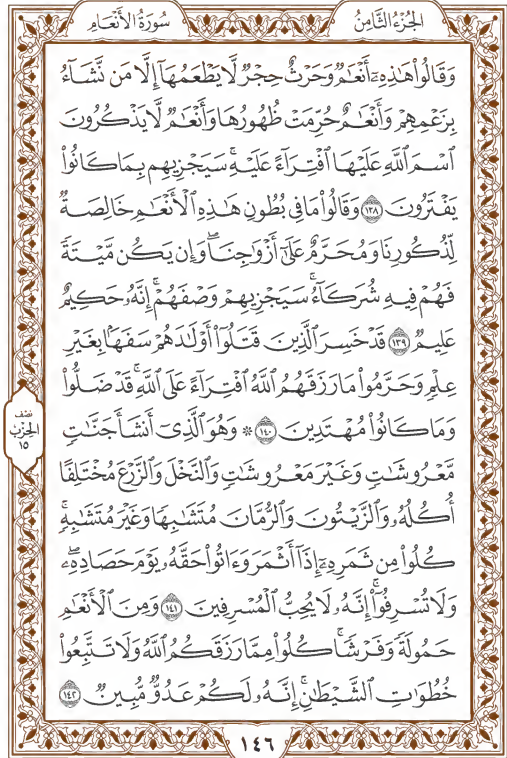 سُورَةُ الأَنْعَامِ
الجُزْءُ الثَّامِنُ
وَقَالُوا۟ هَـٰذِهِۦٓ أَنْعَـٰمٌ وَحَرْثٌ حِجْرٌ لَّا يَطْعَمُهَآ إِلَّا مَن نَّشَآءُ
بِزَعْمِهِمْ وَأَنْعَـٰمٌ حُرِّمَتْ ظُهُورُهَا وَأَنْعَـٰمٌ لَّا يَذْكُرُونَ
ٱسْمَ ٱللَّهِ عَلَيْهَا ٱفْتِرَآءً عَلَيْهِ ۚ سَيَجْزِيهِم بِمَا كَانُوا۟
يَفْتَرُونَ ١٣٨ وَقَالُوا۟ مَا فِى بُطُونِ هَـٰذِهِ ٱلْأَنْعَـٰمِ خَالِصَةٌ
لِّذُكُورِنَا وَمُحَرَّمٌ عَلَىٰٓ أَزْوَٰجِنَا ۖ وَإِن يَكُن مَّيْتَةً
فَهُمْ فِيهِ شُرَكَآءُ ۚ سَيَجْزِيهِمْ وَصْفَهُمْ ۚ إِنَّهُۥ حَكِيمٌ
عَلِيمٌ ١٣٩ قَدْ خَسِرَ ٱلَّذِينَ قَتَلُوٓا۟ أَوْلَـٰدَهُمْ سَفَهًۢا بِغَيْرِ
عِلْمٍ وَحَرَّمُوا۟ مَا رَزَقَهُمُ ٱللَّهُ ٱفْتِرَآءً عَلَى ٱللَّهِ ۚ قَدْ ضَلُّوا۟
وَمَا كَانُوا۟ مُهْتَدِينَ ١٤٠ ۞ وَهُوَ ٱلَّذِىٓ أَنشَأَ جَنَّـٰتٍ
مَّعْرُوشَـٰتٍ وَغَيْرَ مَعْرُوشَـٰتٍ وَٱلنَّخْلَ وَٱلزَّرْعَ مُخْتَلِفًا
أُكُلُهُۥ وَٱلزَّيْتُونَ وَٱلرُّمَّانَ مُتَشَـٰبِهًا وَغَيْرَ مُتَشَـٰبِهٍ ۚ
كُلُوا۟ مِن ثَمَرِهِۦٓ إِذَآ أَثْمَرَ وَءَاتُوا۟ حَقَّهُۥ يَوْمَ حَصَادِهِۦ ۖ
وَلَا تُسْرِفُوٓا۟ ۚ إِنَّهُۥ لَا يُحِبُّ ٱلْمُسْرِفِينَ ١٤١ وَمِنَ ٱلْأَنْعَـٰمِ
حَمُولَةً وَفَرْشًا ۚ كُلُوا۟ مِمَّا رَزَقَكُمُ ٱللَّهُ وَلَا تَتَّبِعُوا۟
خُطُوَٰتِ ٱلشَّيْطَـٰنِ ۚ إِنَّهُۥ لَكُمْ عَدُوٌّ مُّبِينٌ ١٤٢
نصف
الحزب
١٥
١٤٦